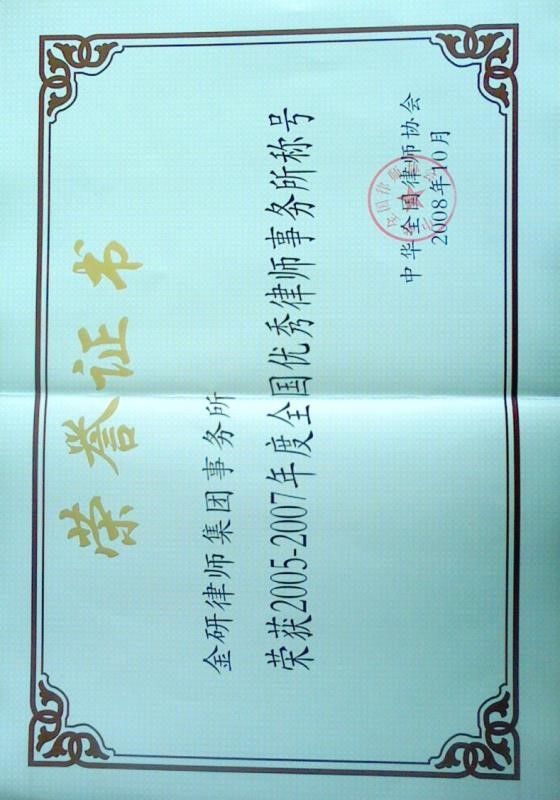 荣誉证书
金研律师集团事务所
荣获2005-2007年度全国优秀律师事务所称号
中华全国律师协会
2008年10月
中华全国律师协会